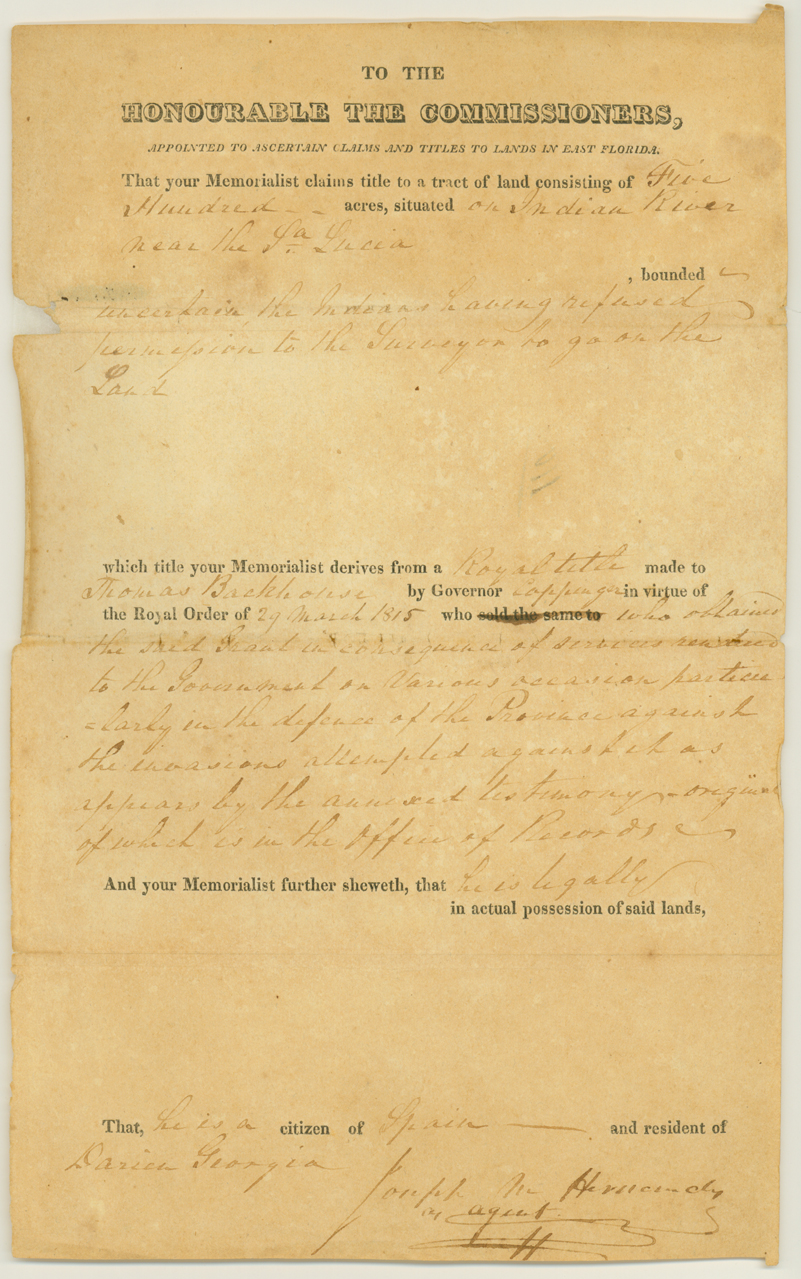 TO THE
HONOURABLE THE COMMISSIONERS,
APPOINTED TO ASCERTAIN CLAIMS AND TITLES TO LANDS IN EAST FLORIDA.
That your Memorialist claims title to a tract of land consisting of Five
Hundred - - acres, situated on Indian River
near the Sta Lucia
, bounded
uncertain the Indians having refused
permission to the Surveyor to go on the
Land
which title your Memorialist derives from a Royal title made to
Thomas Backhouse by Governor Coppinger in virtue of
the Royal Order of 29 March 1815 who sold the same to who obtained
the said Grant in consequence of services rendered
to the Government on Various occasion particu
=larly in the defence of the Province against
the invasions attempted against it as
appears by the annexed testimony - original
of which is in the Office of Records
And your Memorialist further sheweth, that he is legally
in actual possession of said lands,
That, he is a citizen of Spain and resident of
Darien Georgia
Joseph M Hernandez
agent